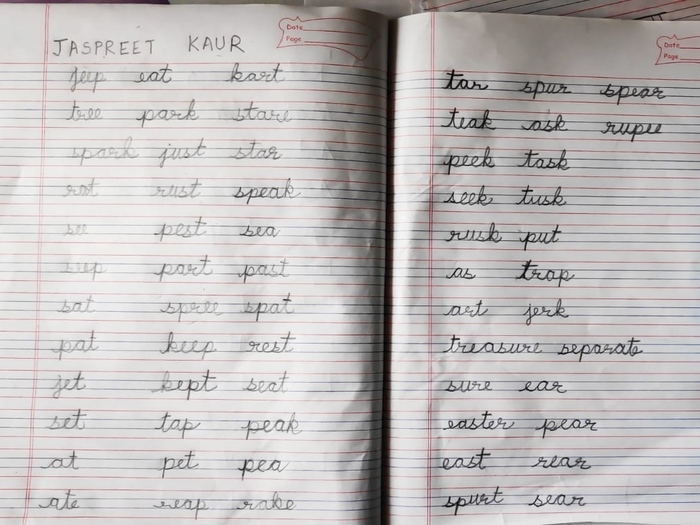 Date
Page
JASPREET KAUR
jeep eat kart
tree park stare
spark just star
rat rust speak
see pest sea
seep part past
sat spree spat
pat keep rest
jet kept seat
set tap peak
at pet pea
ate reap rake
Date
Page
tar spur spear
teak ask rupee
peek task
seek tusk
rusk put
as trap
art jerk
treasure separate
sure ear
easter pear
east rear
spurt sear